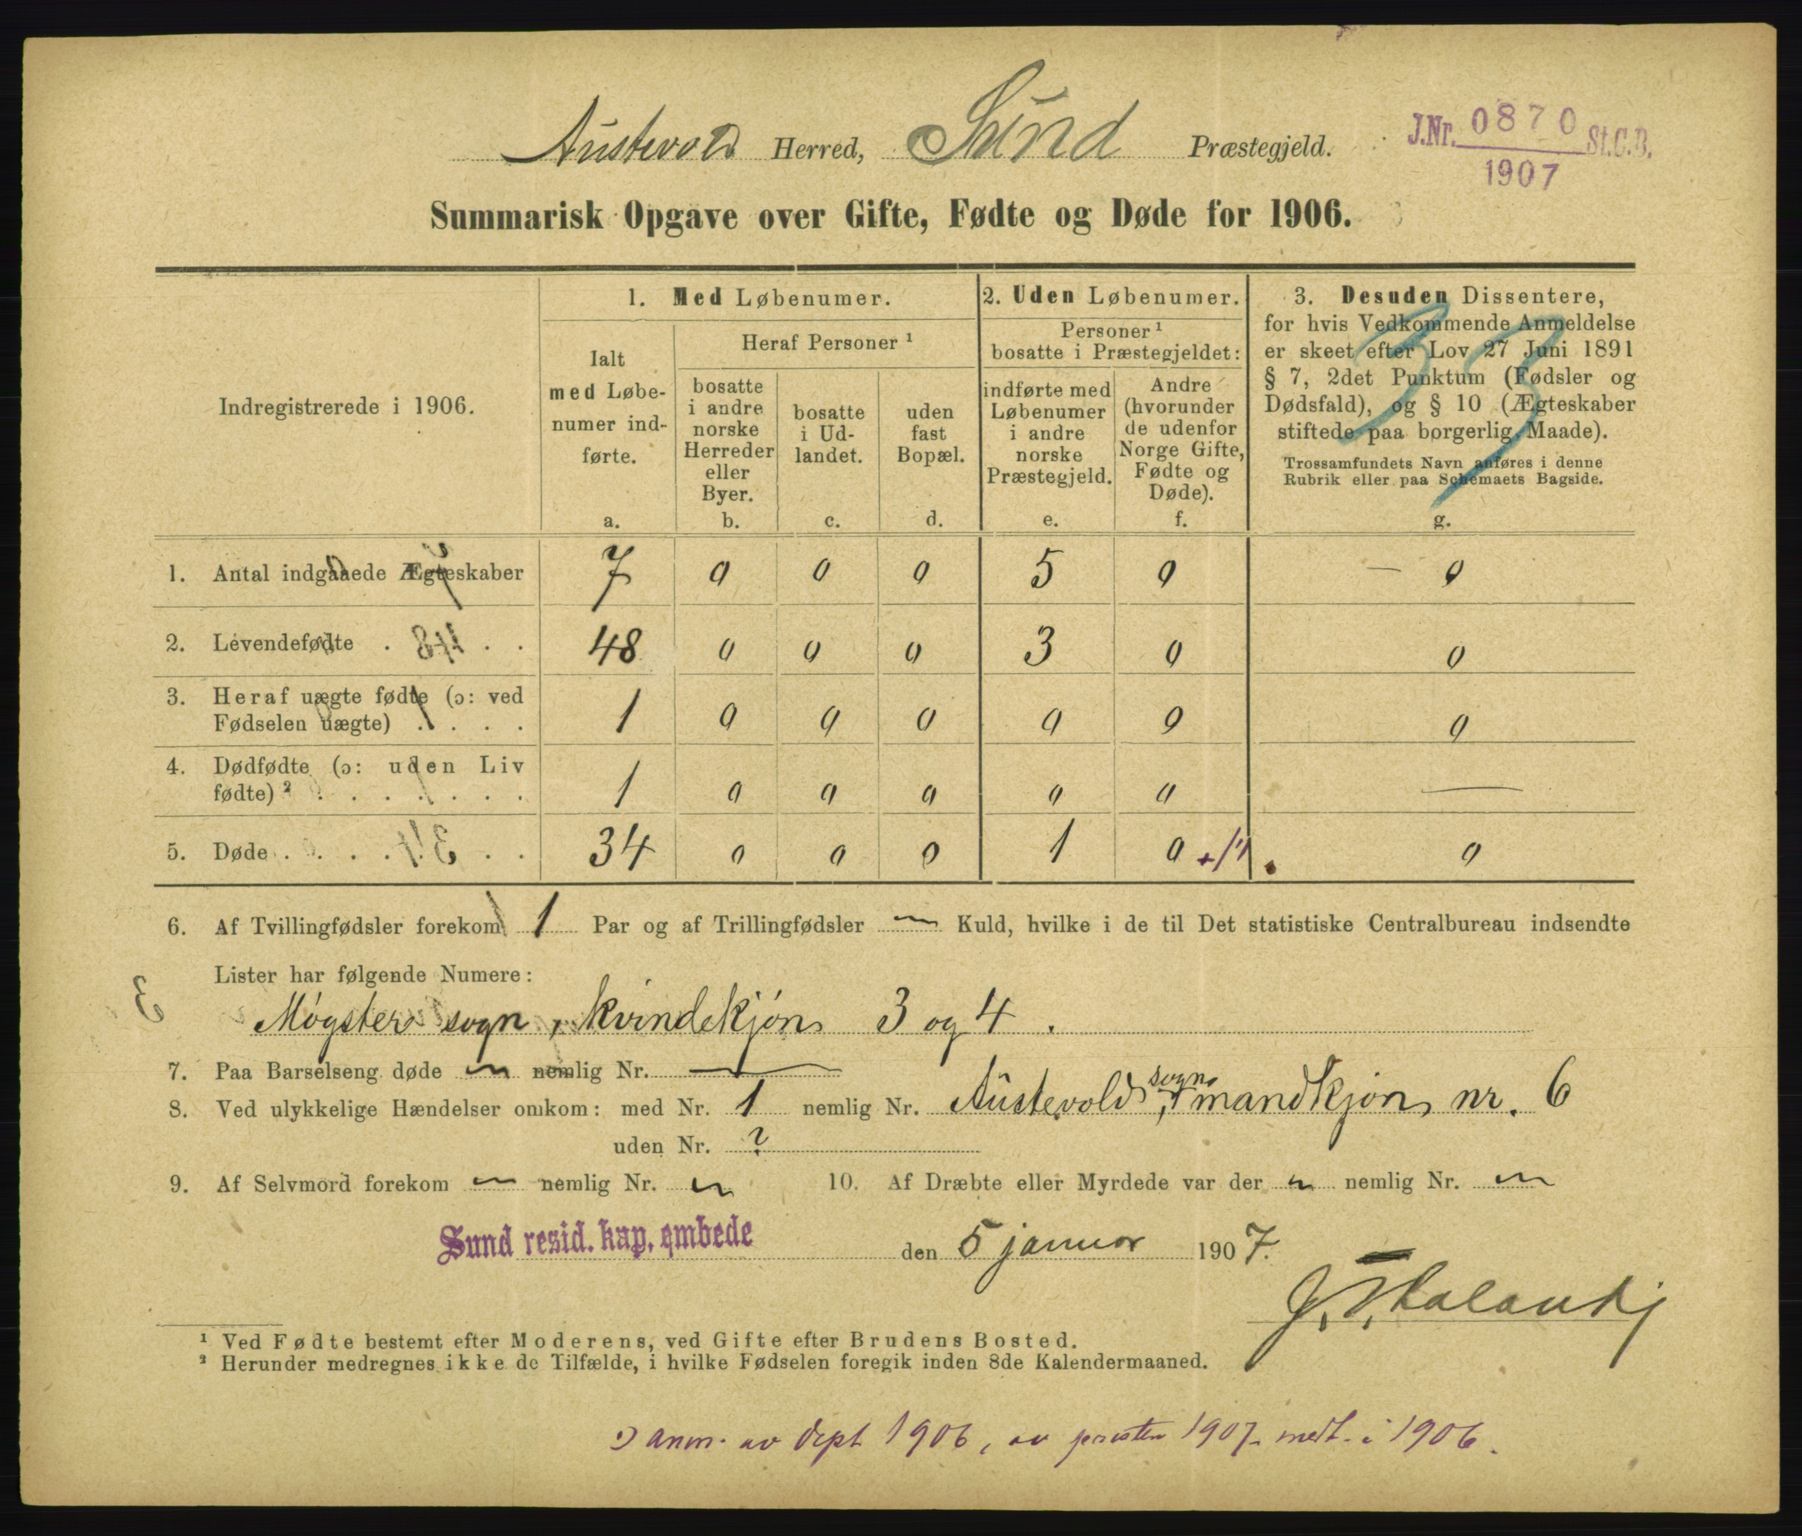 Austevold Herred, Sund Præstegjeld.
J.Nr. 0870 St.C.B.
1907
Summarisk Opgave over Gifte, Fødte og Døde for 1906.
33
Indregistrerede i 1906.
1. Med Løbenumer.
Ialt
med Løbe-
numer ind-
førte.
a.
Heraf Personer ¹
bosatte
i andre
norske
Herreder
eller
Byer.
b.
bosatte
i Ud-
landet.
c.
uden
fast
Bopæl.
d.
2. Uden Løbenumer.
Personer ¹
bosatte i Præstegjeldet:
indførte med
Løbenumer
i andre
norske
Præstegjeld.
e.
Andre
(hvorunder
de udenfor
Norge Gifte,
Fødte og
Døde).
f.
3. Desuden Dissentere,
for hvis Vedkommende Anmeldelse
er skeet efter Lov 27 Juni 1891
§ 7, 2det Punktum (Fødsler og
Dødsfald), og § 10 (Ægteskaber
stiftede paa borgerlig Maade).
Trossamfundets Navn anføres i denne
Rubrik eller paa Schemaets Bagside.
g.
1. Antal indgaaede Ægteskaber 7 0 0 0 5 0 — 0
2. Levendefødte . . . 48 0 0 0 3 0 0
3. Heraf uægte fødte (ɔ: ved
Fødselen uægte) . . . . 1 0 0 0 0 0 0
4. Dødfødte (ɔ: uden Liv
fødte) ² . . . . . . . 1 0 0 0 0 0 —
5. Døde . . . . . . 34 0 0 0 1 0 +1 0
6. Af Tvillingfødsler forekom 1 Par og af Trillingfødsler — Kuld, hvilke i de til Det statistiske Centralbureau indsendte
Lister har følgende Numere:
Møgster sogn, kvindekjøn 3 og 4.
7. Paa Barselseng døde — nemlig Nr. —
8. Ved ulykkelige Hændelser omkom: med Nr. 1 nemlig Nr. Austevold sogn, mandkjøn nr. 6
uden Nr. ?
9. Af Selvmord forekom — nemlig Nr. — 10. Af Dræbte eller Myrdede var der — nemlig Nr. —
Sund resid. kap. embede den 5 januar 1907.
¹ Ved Fødte bestemt efter Moderens, ved Gifte efter Brudens Bosted.
² Herunder medregnes ikke de Tilfælde, i hvilke Fødselen foregik inden 8de Kalendermaaned.
anm. av dept 1906, av præsten 1907 medt. i 1906.